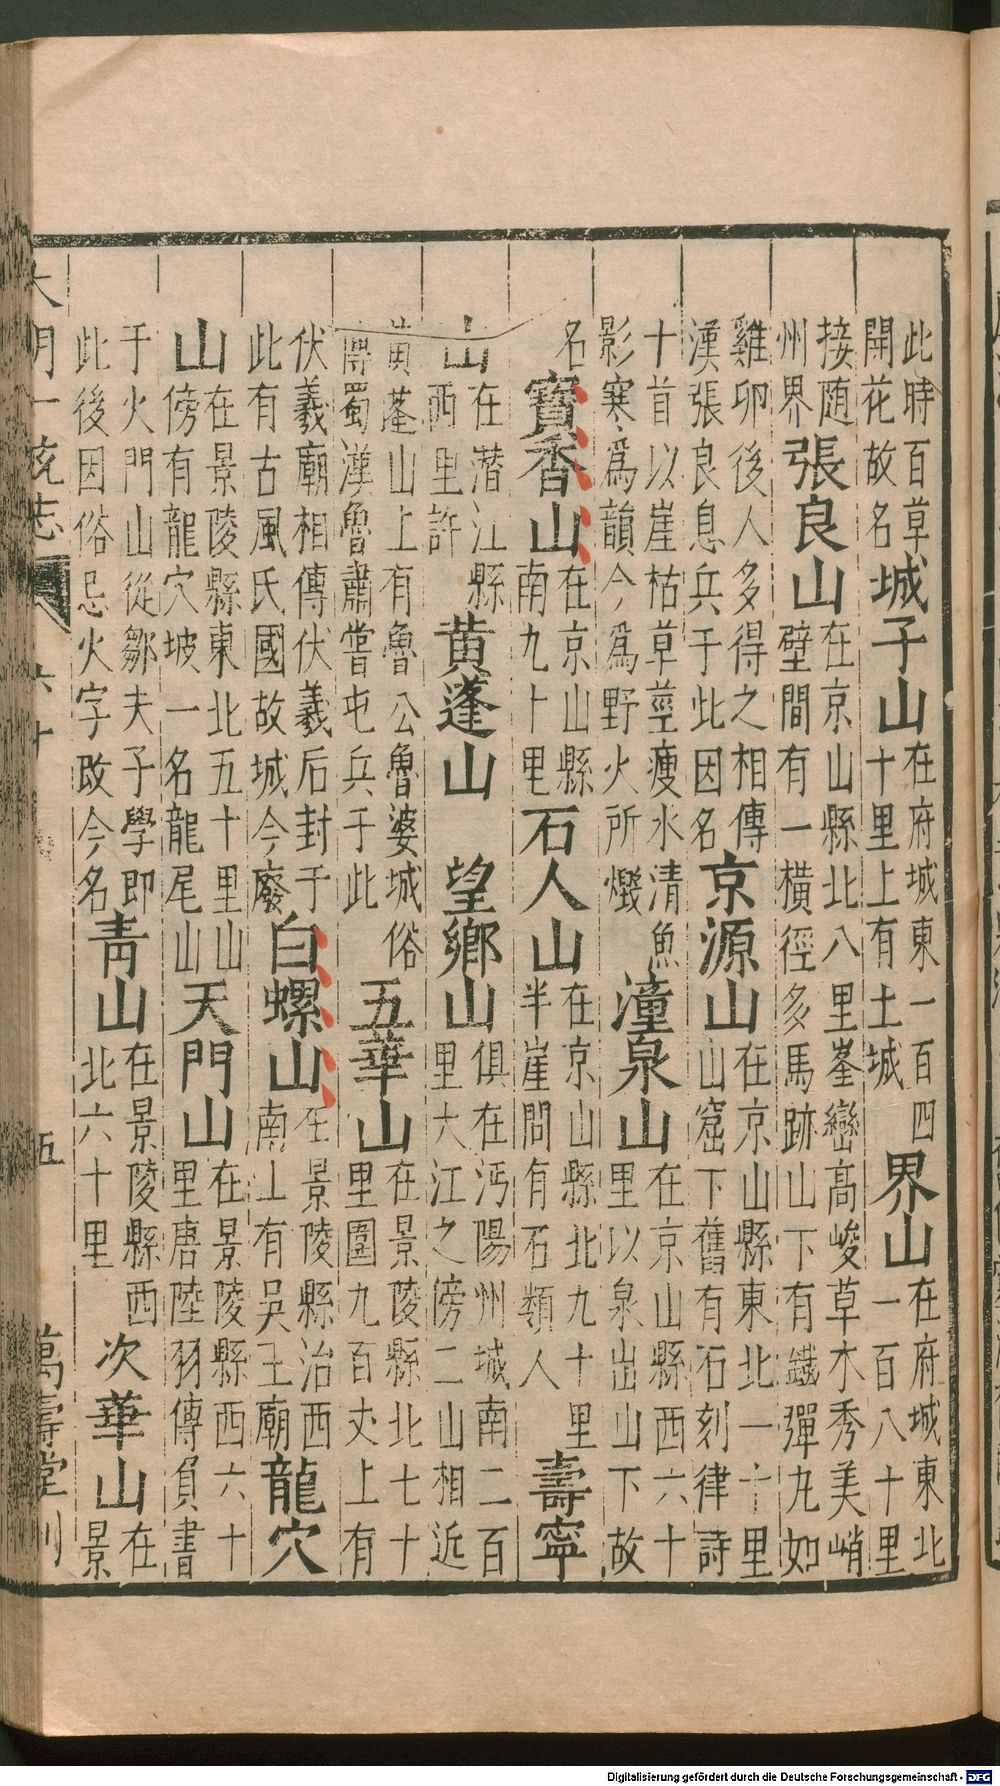 此時百草
開花故名
城子山
在府城東一百四
十里上有土城
界山
在府城東北
一百八十里
接随
州界
張良山
在京山縣北八里峯巒高峻草木秀美峭
壁間有一橫徑多馬跡山下有鐵彈九如
雞卵後人多得之相傳
漢張良息兵于此因名
京源山
在京山縣東北一十里
山窟下舊有石刻律詩
十首以崖枯草莖瘦水清魚
影寒爲韻今爲野火所燬
潼泉山
在京山縣西六十
里以泉出山下故
名
寶香山
在京山縣
南九十里
石人山
在京山縣北九十里
半崖間有石類人
壽寧
山
在潛江縣
西里許
黄蓬山
望鄉山
俱在沔陽州城南二百
里大江之傍二山相近
黄蓬山上有魯公魯婆城俗
傳蜀漢魯肅嘗屯兵于此
五華山
在景陵縣北七十
里圍九百丈上有
伏羲廟相傳伏羲后封于
此有古風氏國故城今廢
白螺山
在景陵縣治西
南上有吴王廟
龍穴
山
在景陵縣東北五十里山
傍有龍穴坡一名龍尾山
天門山
在景陵縣西六十
里唐陸羽傳負書
于火門山從鄒夫子學即
此後因俗忌火字改今名
青山
在景陵縣西
北六十里
次華山
在
景
大明一統志
六十
五
萬壽堂刊
Digitalisierung gefördert durch die Deutsche Forschungsgemeinschaft - DFG